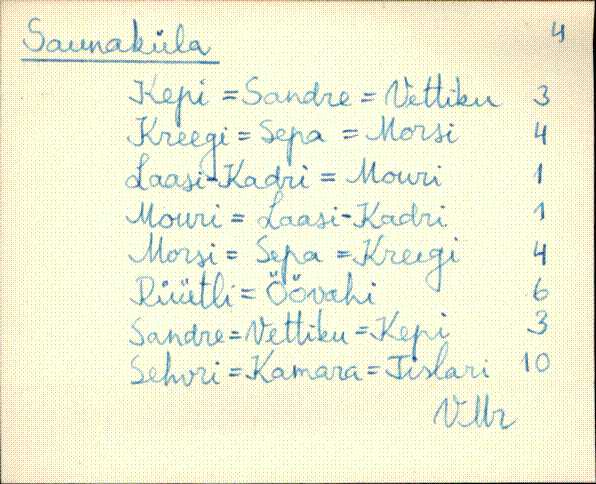 Saunaküla 4
Kepi = Sandre = Vettiku 3
Kreegi = Sepa = Morsi 4
Laasi-Kadri = Mouri 1
Mouri = Laasi-Kadri 1
Morsi = Sepa = Kreegi 4
Rüütli = Öövahi 6
Sandre = Vettiku = Kepi 3
Sehvri = Kamara = Tislari 10
VMr